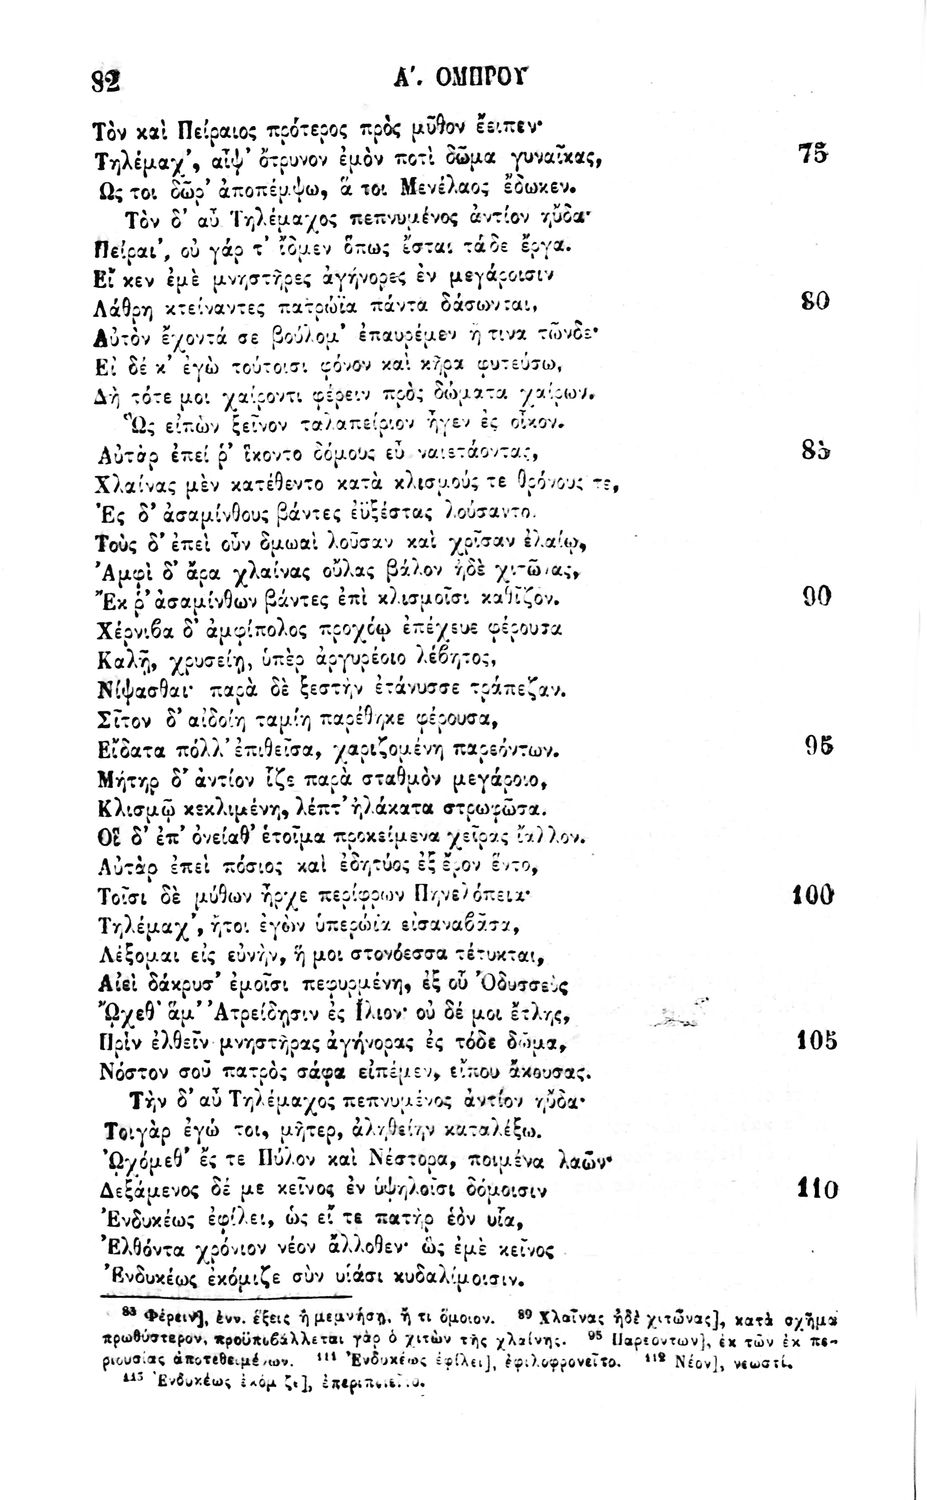 82
Α΄. ΟΜΗΡΟΥ
Τὸν καὶ Πείραιος πρότερος πρὸς μῦθον ἔειπεν·
Τηλέμαχ', αἶψ' ὄτρυνον ἐμὸν ποτὶ δῶμα γυναῖκας, 75
Ὥς τοι δῶρ' ἀποπέμψω, ἅ τοι Μενέλαος ἔδωκεν.
Τὸν δ' αὖ Τηλέμαχος πεπνυμένος ἀντίον ηὔδα·
Πείραι', οὐ γάρ τ' ἴδμεν ὅπως ἔσται τάδε ἔργα.
Εἴ κεν ἐμὲ μνηστῆρες ἀγήνορες ἐν μεγάροισιν
Λάθρη κτείναντες πατρώϊα πάντα δάσωνται, 80
Αὐτὸν ἔχοντά σε βούλομ' ἐπαυρέμεν ἤ τινα τῶνδε·
Εἰ δέ κ' ἐγὼ τούτοισι φόνον καὶ κῆρα φυτεύσω,
Δὴ τότε μοι χαίροντι φέρειν πρὸς δώματα χαίρων.
Ὣς εἰπὼν ξεῖνον ταλαπείριον ἦγεν ἐς οἶκον.
Αὐτὰρ ἐπεί ῥ' ἵκοντο δόμους εὖ ναιετάοντας, 85
Χλαίνας μὲν κατέθεντο κατὰ κλισμούς τε θρόνους τε,
Ἐς δ' ἀσαμίνθους βάντες ἐϋξέστας λούσαντο.
Τοὺς δ' ἐπεὶ οὖν δμωαὶ λοῦσαν καὶ χρῖσαν ἐλαίῳ,
Ἀμφὶ δ' ἄρα χλαίνας οὔλας βάλον ἠδὲ χιτῶνας,
Ἔκ ῥ' ἀσαμίνθων βάντες ἐπὶ κλισμοῖσι καθῖζον. 90
Χέρνιβα δ' ἀμφίπολος προχόῳ ἐπέχευε φέρουσα
Καλῇ, χρυσείῃ, ὑπὲρ ἀργυρέοιο λέβητος,
Νίψασθαι· παρὰ δὲ ξεστὴν ἐτάνυσσε τράπεζαν.
Σῖτον δ' αἰδοίη ταμίη παρέθηκε φέρουσα,
Εἴδατα πόλλ' ἐπιθεῖσα, χαριζομένη παρεόντων. 95
Μήτηρ δ' ἀντίον ἷζε παρὰ σταθμὸν μεγάροιο,
Κλισμῷ κεκλιμένη, λέπτ' ἠλάκατα στρωφῶσα.
Οἳ δ' ἐπ' ὀνείαθ' ἑτοῖμα προκείμενα χεῖρας ἴαλλον.
Αὐτὰρ ἐπεὶ πόσιος καὶ ἐδητύος ἐξ ἔρον ἕντο,
Τοῖσι δὲ μύθων ἦρχε περίφρων Πηνελόπεια· 100
Τηλέμαχ', ἤτοι ἐγὼν ὑπερώϊα εἰσαναβᾶσα,
Λέξομαι εἰς εὐνὴν, ἥ μοι στονόεσσα τέτυκται,
Αἰεὶ δάκρυσ' ἐμοῖσι πεφυρμένη, ἐξ οὗ Ὀδυσσεὺς
Ὤχεθ' ἅμ' Ἀτρείδησιν ἐς Ἴλιον· οὐ δέ μοι ἔτλης,
Πρὶν ἐλθεῖν μνηστῆρας ἀγήνορας ἐς τόδε δῶμα, 105
Νόστον σοῦ πατρὸς σάφα εἰπέμεν, εἴπου ἄκουσας.
Τὴν δ' αὖ Τηλέμαχος πεπνυμένος ἀντίον ηὔδα·
Τοιγὰρ ἐγώ τοι, μῆτερ, ἀληθείην καταλέξω.
Ὠχόμεθ' ἔς τε Πύλον καὶ Νέστορα, ποιμένα λαῶν·
Δεξάμενος δέ με κεῖνος ἐν ὑψηλοῖσι δόμοισιν 110
Ἐνδυκέως ἐφίλει, ὡς εἴ τε πατὴρ ἑὸν υἷα,
Ἐλθόντα χρόνιον νέον ἄλλοθεν· ὣς ἐμὲ κεῖνος
Ἐνδυκέως ἐκόμιζε σὺν υἱάσι κυδαλίμοισιν.
83 Φέρειν], ἐνν. ἕξεις ἢ μεμνήσῃ, ἤ τι ὅμοιον. 89 Χλαίνας ἠδὲ χιτῶνας], κατὰ σχῆμα
πρωθύστερον, προϋποβάλλεται γὰρ ὁ χιτὼν τῆς χλαίνης. 95 Παρεόντων], ἐκ τῶν ἐκ πε-
ριουσίας ἀποτεθειμένων. 111 Ἐνδυκέως ἐφίλει], ἐφιλοφρονεῖτο. 112 Νέον], νεωστί.
113 Ἐνδυκέως ἐκόμιζε], ἐπεριποιεῖτο.